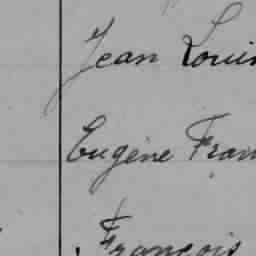 Jean Loui
Eugène Fran
François